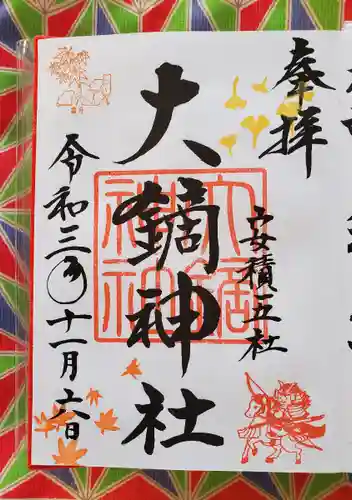 奉拝
安積五社
大鏑神社
大鏑
神社
令和三年十一月六日